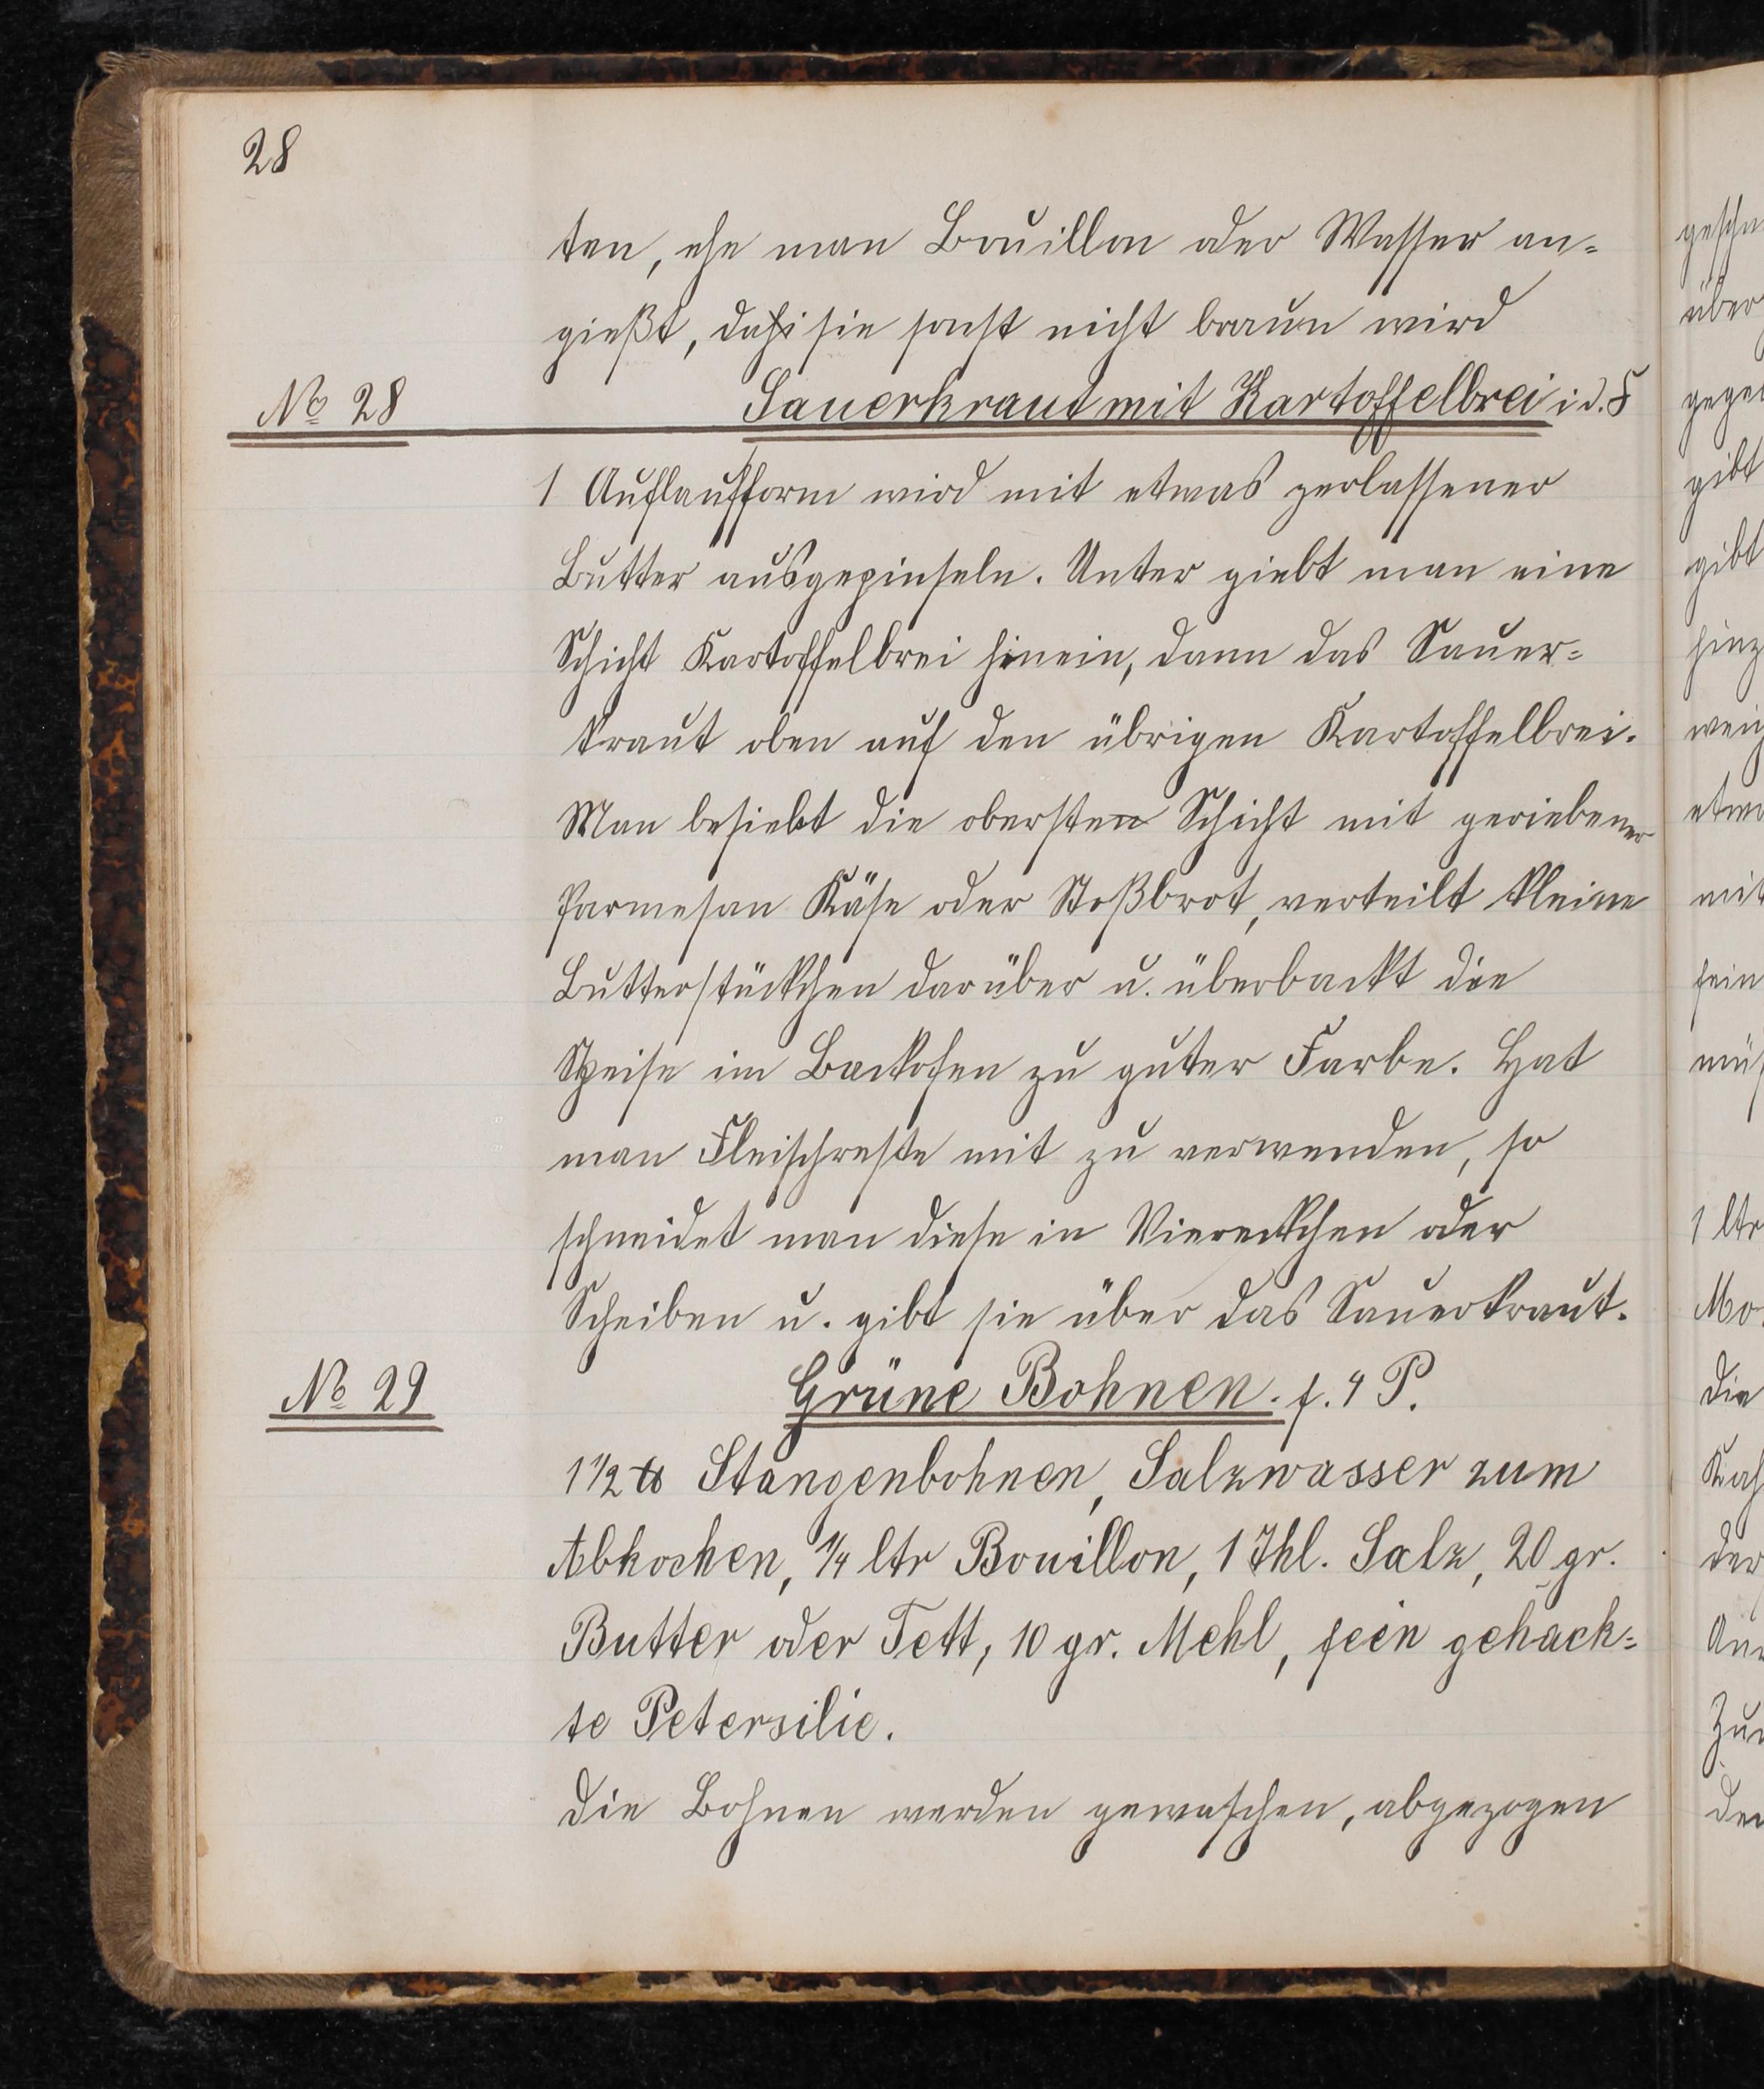 28
ten, ehe man Bouillon oder Wasser an=
gießt, da sie sonst nicht braun wird
No 28 Sauerkraut mit Kartoffelbrei i. d. F
1 Auflaufform wird mit etwas zerlassener
Butter ausgepinseln. Unter giebt man eine
Schicht Kartoffelbrei hinein, dann das Sauer=
kraut oben auf den übrigen Kartoffelbrei.
Man besiebt die obersten Schicht mit geriebener
Parmesan Käse oder Stoßbrot, verteilt kleine
Butterstückchen darüber u. überbackt die
Speise im Backofen zu guter Farbe. Hat
man Fleischreste mit zu verwenden, so
schneidet man diese in Viereckchen oder
Scheiben u. gibt sie über das Sauerkraut.
No 29 Grüne Bohnen. f. 4 P.
1 1/2 ℔ Stangenbohnen, Salzwasser zum
Abkochen, 1/4 ltr Bouillon, 1 Thl. Salz, 20 gr.
Butter oder Fett, 10 gr. Mehl, fein gehack=
te Petersilie.
Die Bohnen werden gewaschen, abgezogen
über
gibt
gibt
mit
fein
1 ltr
die
der